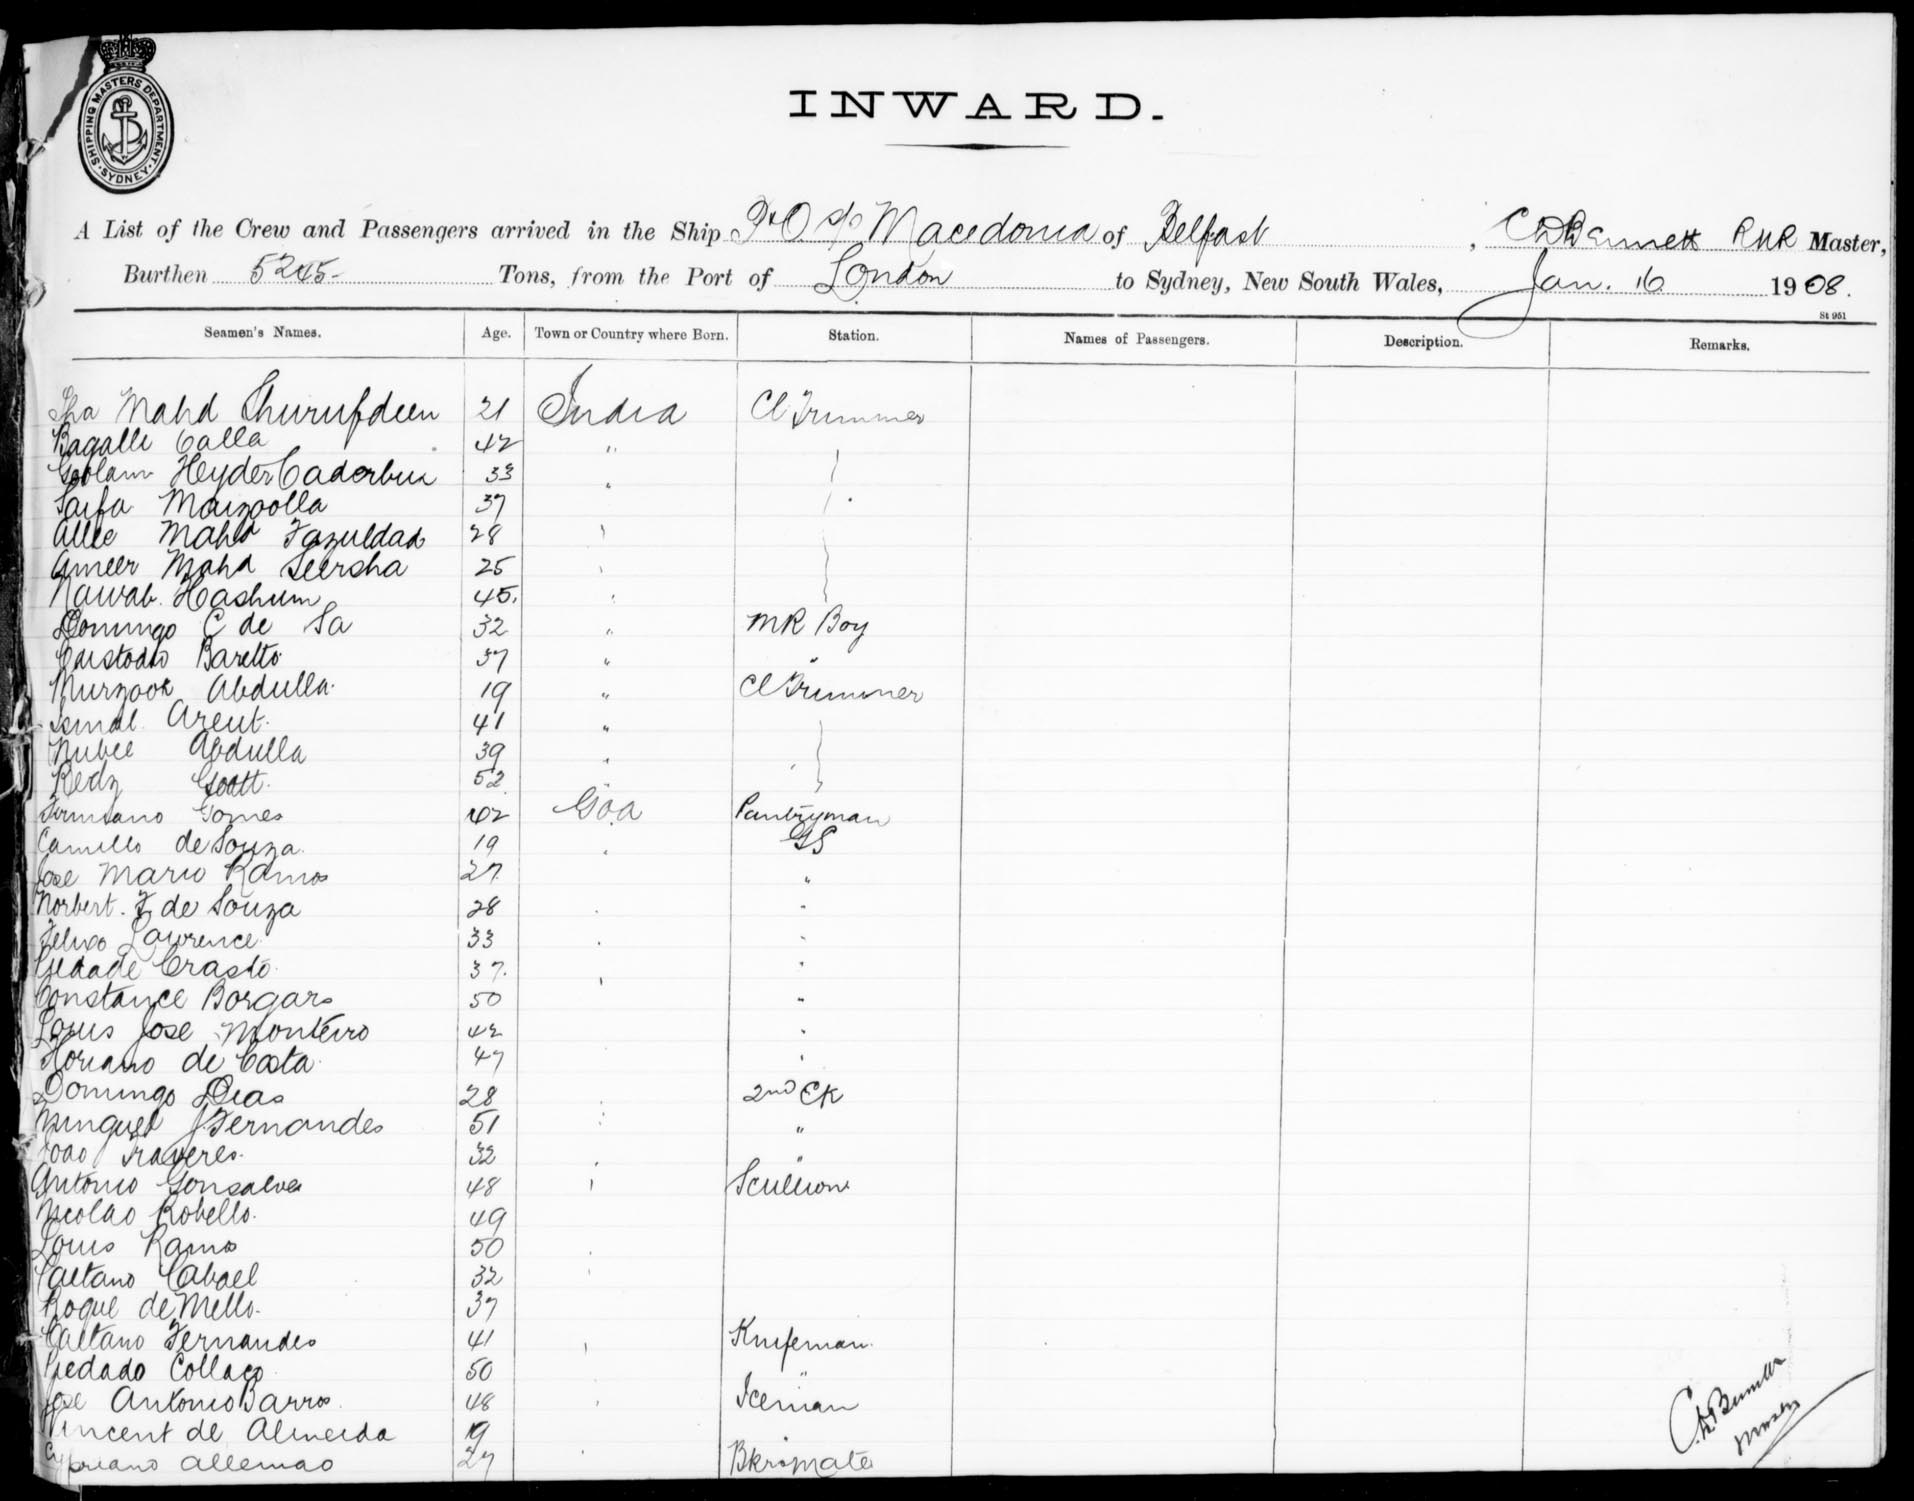 SHIPPING MASTERS DEPARTMENT. SYDNEY.
INWARD.
A List of the Crew and Passengers arrived in the Ship P&O s/s Macedonia of Belfast, C D Bennett RNR Master,
Burthen 5245 Tons, from the Port of London to Sydney, New South Wales, Jan. 16 1908.
St 951
Seamen's Names. Age. Town or Country where Born. Station. Names of Passengers. Description. Remarks.
Sha Mahd Shurufdeen 21 India Cl Trimmer
Bagalli Calla 42 "
Goolam Heyder Caderbux 33 "
Saifa Maizoolla 37
Allee Mahd Fazuldad 28
Ameer Mahd Seersha 25
Nawab Hashum 45.
Domingo C de Sa 32 " MR Boy
Custodio Baretto 37 " "
Murzook Abdulla 19 " Cl Trimmer
Ismal Areut 41 "
Nubee Abdulla 39 "
Redz Goott 52
Firmiano Gomes 42 Goa Pantryman
Camillo de Souza 19 GS
Jose Mario Ramos 27 "
Norbert. F de Souza 28 "
Felixo Lawrence 33 "
Piedade Crasto 37. "
Constance Borgars 50 "
Louis Jose Monteiro 42 "
Floriano de Costa 47 "
Domingo Dias 28 2nd CK
Minguel J. Fernandes 51 "
Joao Traveres 32 "
Antonio Gonsalves 48 Scullion
Nicolao Robello 49
Louis Ramos 50
Caetano Cabael 32
Roque de Mello 37
Caetano Fernandes 41 Knifeman
Piedado Collaco 50 "
Jose Antonio Barros 48 Iceman
Vincent de Almeida 19
Cypriano Allemao 27 Bkrs Mate
C D Bennett
Master